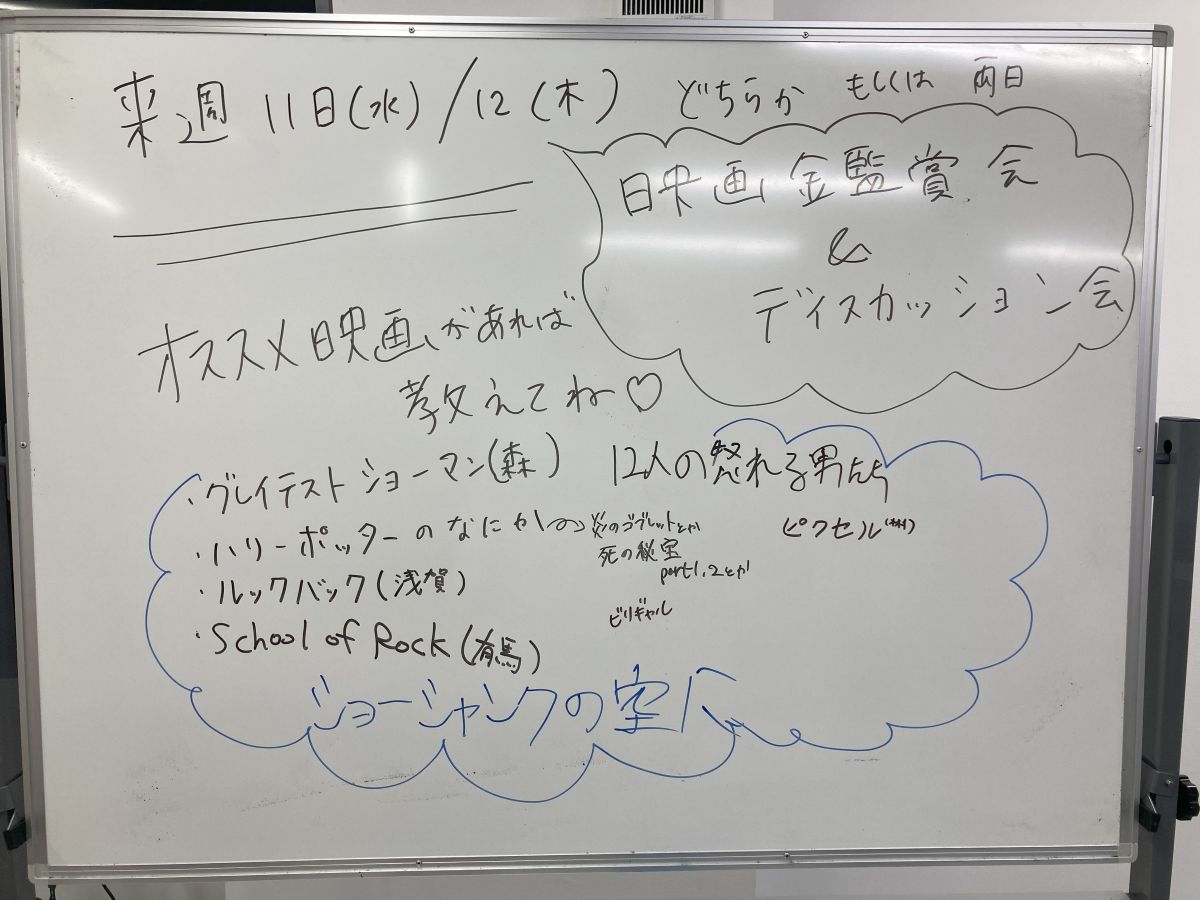 来週 11日(水)/12(木) どちらか もしくは 両日
映画鑑賞会
&
ディスカッション会
オススメ映画があれば
教えてねー♡
・グレイテストショーマン(森)
12人の怒れる男たち
・ハリーポッターのなにか
炎のゴブレットとか
死の秘宝
part1.2とか
ピクセル
・ルックバック(浅賀)
ビリギャル
・School of Rock(有馬)
ショーシャンクの空へ